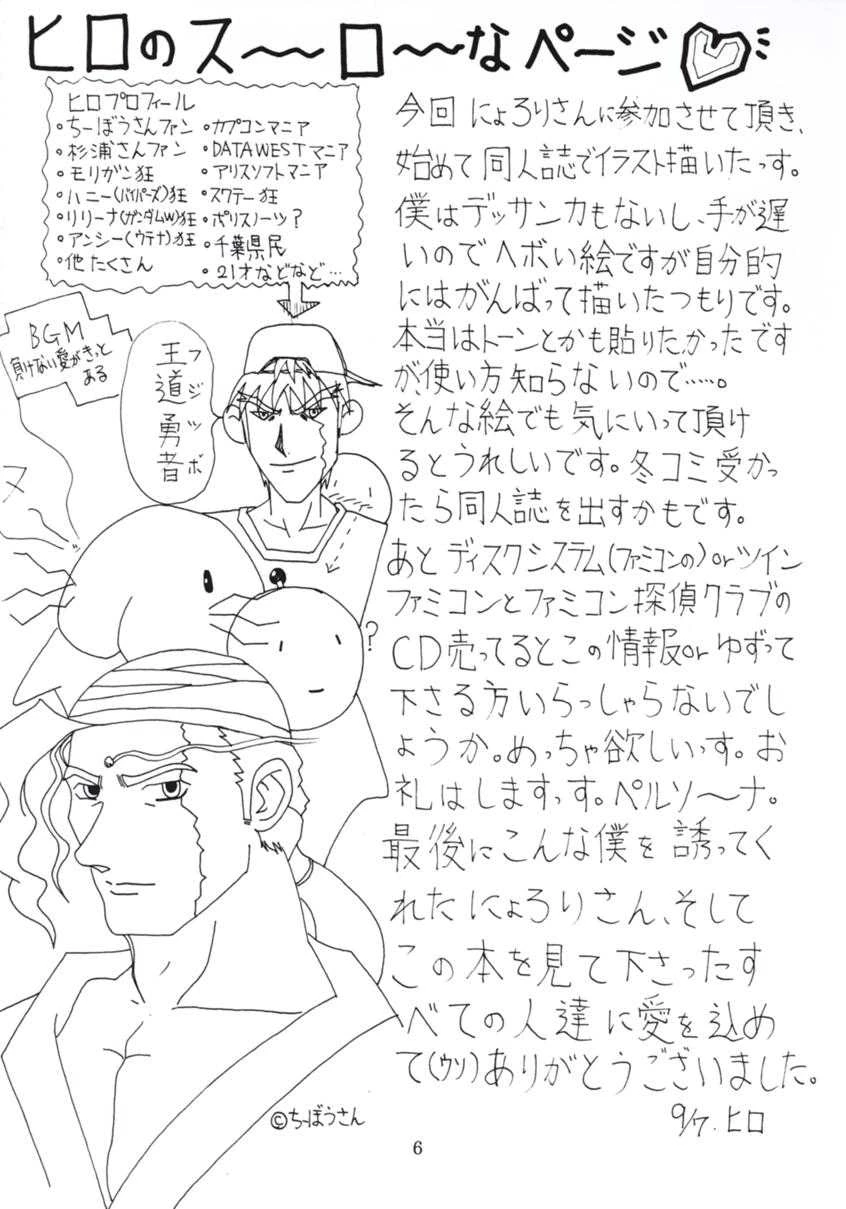 ヒロのス〜〜ロ〜〜なページ
ヒロプロフィール
・ちーぼうさんファン
・杉浦さんファン
・モリガン狂
・ハニー(バイパーズ)狂
・リリーナ(ガンダムW)狂
・アンシー(ウテナ)狂
・他たくさん
・カプコンマニア
・DATAWESTマニア
・アリスソフトマニア
・スクテー狂
・ポリスノーツ?
・千葉県民
・21才などなど…
BGM
負けない愛がきっと
ある
王道勇者
フジツボ
ヌ
?
今回 にょろりさんに参加させて頂き、
始めて同人誌でイラスト描いたっす。
僕はデッサン力もないし、手が遅
いのでヘボい絵ですが自分的
にはがんばって描いたつもりです。
本当はトーンとかも貼りたかったです
が、使い方知らないので……。
そんな絵でも気にいって頂け
るとうれしいです。冬コミ受かっ
たら同人誌を出すかもです。
あと ディスクシステム(ファミコンの)orツイン
ファミコンとファミコン探偵クラブの
CD売ってるとこの情報orゆずって
下さる方いらっしゃらないでし
ょうか。めっちゃ欲しいっす。お
礼はしますっす。ペルソ〜ナ。
最後にこんな僕を誘ってく
れたにょろりさん、そして
この本を見て下さったす
べての人達に愛を込め
て(ウソ)ありがとうございました。
9/7. ヒロ
©ちーぼうさん
6